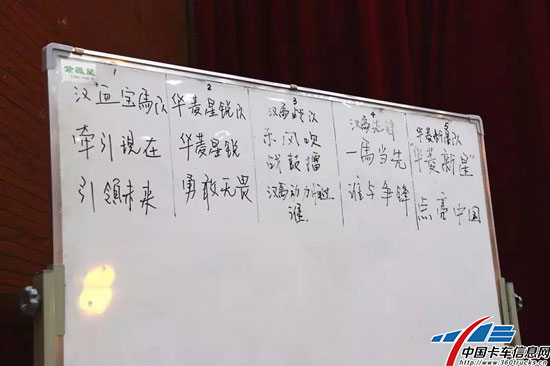 紫薇星
1
汉血宝馬队
牵引现在
引领未来
2
华菱星锐队
华菱星锐
勇敢无畏
3
汉马战队
东风吹
战鼓擂
汉马动力怕过
谁
4
汉马
一馬当先
谁与争锋
5
华菱新星队
"华菱新星"
点亮中国
中国卡车信息网
http://www.360trucks.cn